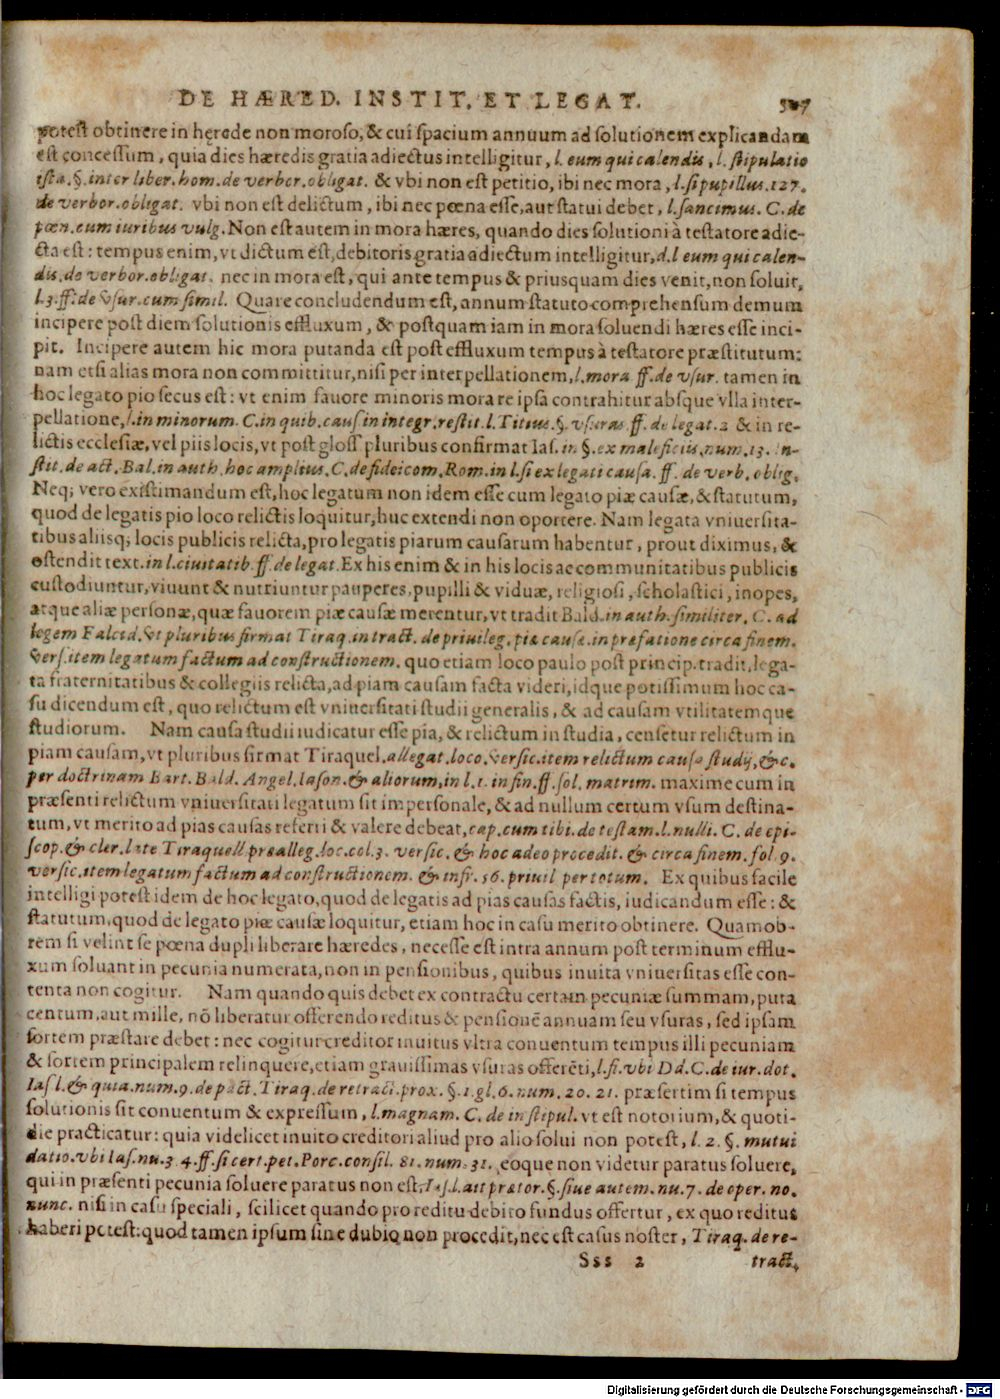 DE HÆRED. INSTIT. ET LEGAT. 507
potest obtinere in hęrede non moroso, & cui spacium annuum ad solutionem explicandam
est concessum, quia dies hæredis gratia adiectus intelligitur, l. eum qui calendis, l. stipulatio
ista. §. inter liber. hom. de verbor. obligat. & vbi non est petitio, ibi nec mora, l. si pupillus. 127.
de verbor. obligat. vbi non est delictum, ibi nec pœna esse, aut statui debet, l. sancimus. C. de
pœn. cum iuribus vulg. Non est autem in mora hæres, quando dies solutioni à testatore adie-
cta est: tempus enim, vt dictum est, debitoris gratia adiectum intelligitur, d. l eum qui calen-
dis. de verbor. obligat. nec in mora est, qui ante tempus & priusquam dies venit, non soluit,
l. 3. ff. de vsur. cum simil. Quare concludendum est, annum statuto comprehensum demum
incipere post diem solutionis effluxum, & postquam iam in mora soluendi hæres esse inci-
pit. Incipere autem hic mora putanda est post effluxum tempus à testatore præstitutum:
nam etsi alias mora non committitur, nisi per interpellationem, l. mora ff. de vsur. tamen in
hoc legato pio secus est: vt enim fauore minoris mora re ipsa contrahitur absque vlla inter-
pellatione, l. in minorum. C. in quib. caus in integr. restit. l. Titius. §. vsuras. ff. de legat. 2 & in re-
lictis ecclesiæ, vel piis locis, vt post gloss pluribus confirmat Ias. in §. ex maleficiis, num. 13. in-
stit. de act. Bal. in auth. hoc amplius. C. de fideicom. Rom. in l. si ex legati causa. ff. de verb. oblig.
Neq; vero existimandum est, hoc legatum non idem esse cum legato piæ causæ, & statutum,
quod de legatis pio loco relictis loquitur, huc extendi non oportere. Nam legata vniuersita-
tibus aliisq; locis publicis relicta, pro legatis piarum causarum habentur, prout diximus, &
ostendit text. in l. ciuitatib. ff. de legat. Ex his enim & in his locis ac communitatibus publicis
custodiuntur, viuunt & nutriuntur pauperes, pupilli & viduæ, religiosi, scholastici, inopes,
atque aliæ personæ, quæ fauorem piæ causæ merentur, vt tradit Bald. in auth. similiter. C. ad
legem Falcid. & pluribus firmat Tiraq. in tract. de priuileg. piæ causæ. in prefatione circa finem.
vers. item legatum factum ad constructionem. quo etiam loco paulo post princip. tradit, lega-
ta fraternitatibus & collegiis relicta, ad piam causam facta videri, idque potissimum hoc ca-
su dicendum est, quo relictum est vniuersitati studii generalis, & ad causam vtilitatemque
studiorum. Nam causa studii iudicatur esse pia, & relictum in studia, censetur relictum in
piam causam, vt pluribus firmat Tiraquel. allegat. loco. versic. item relictum causa studij, &c.
per doctrinam Bart. Bald. Angel. Iason. & aliorum, in l. 1. in fin. ff. sol. matrim. maxime cum in
præsenti relictum vniuersitati legatum sit impersonale, & ad nullum certum vsum destina-
tum, vt merito ad pias causas referri & valere debeat, cap. cum tibi. de testam. l. nulli. C. de epi-
scop. & cler. late Tiraquell. præalleg. loc. col. 3. versic. & hoc adeo procedit. & circa finem. fol. 9.
versic. item legatum factum ad constructionem. & infr. 56. priuil per totum. Ex quibus facile
intelligi potest idem de hoc legato, quod de legatis ad pias causas factis, iudicandum esse: &
statutum, quod de legato piæ causæ loquitur, etiam hoc in casu merito obtinere. Quamob-
rem si velint se pœna dupli liberare hæredes, necesse est intra annum post terminum efflu-
xum soluant in pecunia numerata, non in pensionibus, quibus inuita vniuersitas esse con-
tenta non cogitur. Nam quando quis debet ex contractu certam pecuniæ summam, puta
centum, aut mille, nō liberatur offerendo reditus & pensionē annuam seu vsuras, sed ipsam
sortem præstare debet: nec cogitur creditor inuitus vltra conuentum tempus illi pecuniam
& sortem principalem relinquere, etiam grauissimas vsuras offerēti, l. fi. vbi Dd. C. de iur. dot.
Ias l. & quia. num. 9. de pact. Tiraq. de retract. prox. §. 1. gl. 6. num. 20. 21. præsertim si tempus
solutionis sit conuentum & expressum, l. magnam. C. de in stipul. vt est notorium, & quoti-
die practicatur: quia videlicet inuito creditori aliud pro alio solui non potest, l. 2. §. mutui
datio. vbi Ias. nu. 3 4. ff. si cert. pet. Porc. consil. 81. num. 31. eoque non videtur paratus soluere,
qui in præsenti pecunia soluere paratus non est, Ias. l. ait prætor. §. siue autem. nu. 7. de oper. no.
nunc. nisi in casu speciali, scilicet quando pro reditu debito fundus offertur, ex quo reditus
haberi potest: quod tamen ipsum sine dubio non procedit, nec est casus noster, Tiraq. de re-
Sss 2 tract.
Digitalisierung gefördert durch die Deutsche Forschungsgemeinschaft - DFG